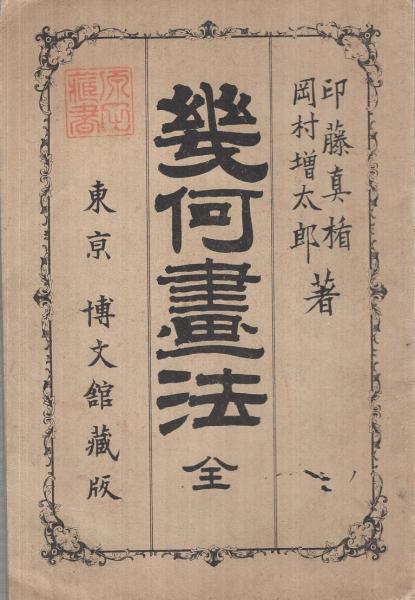 印藤真楯
岡村増太郎
著
幾何畫法
全
東京 博文館藏版